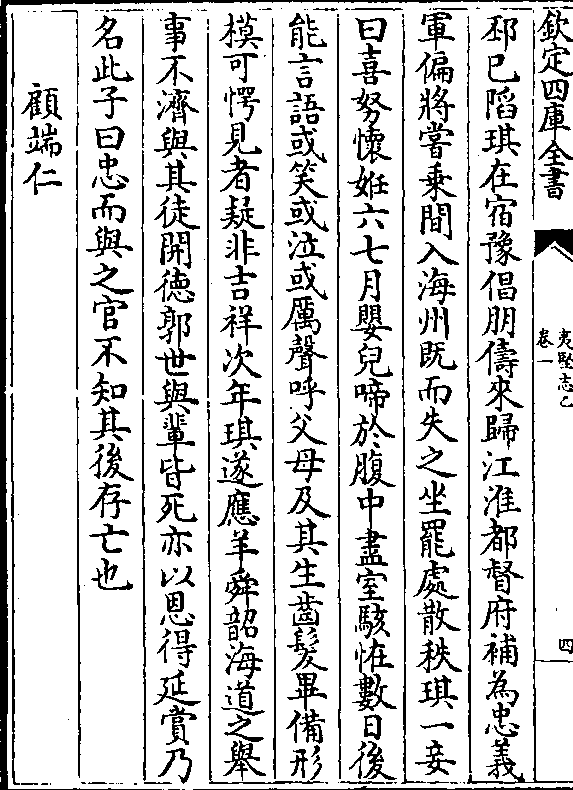 欽定四庫全書
夷堅志乙
卷一
四
邳已陷琪在宿豫倡朋儔來歸江淮都督府補為忠義
軍偏將嘗乘間入海州既而失之坐罷處散秩琪一妾
曰喜努懷姙六七月嬰兒啼於腹中盡室駭恠數日後
能言語或笑或泣或厲聲呼父母及其生齒髮畢備形
模可愕見者疑非吉祥次年琪遂應羊舜韶海道之舉
事不濟與其徒開德郭世興輩皆死亦以恩得延賞乃
名此子曰忠而與之官不知其後存亡也
顧端仁